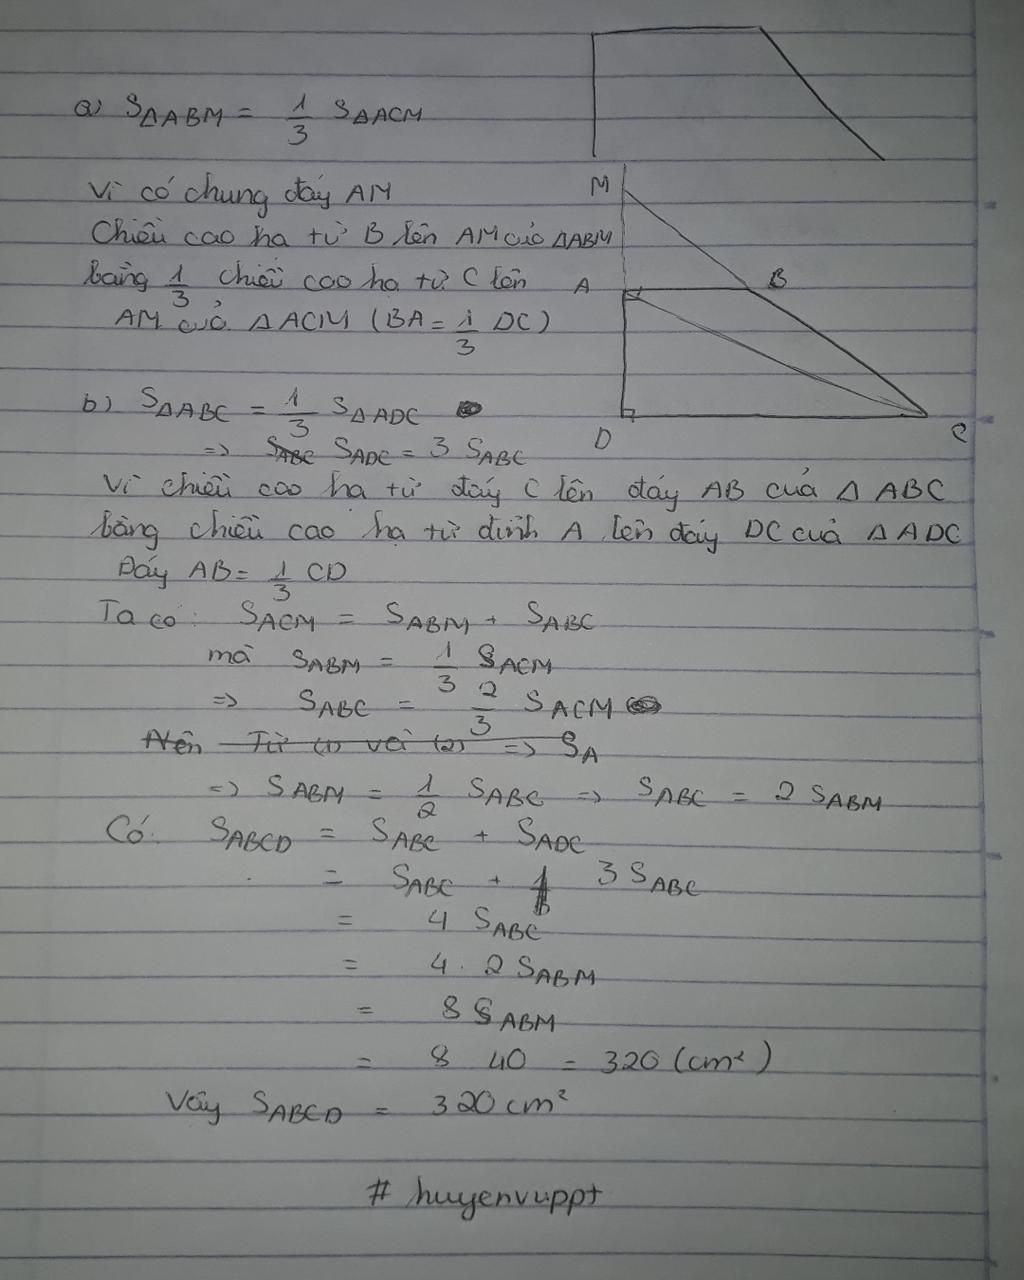 a) SΔABM = 1/3 SΔACM
Vì có chung đáy AM
Chiều cao hạ từ B lên AM của ΔABM
bằng 1/3 chiều cao hạ từ C lên
AM của ΔACM (BA = 1/3 DC)
M
A
B
D
C
b) SΔABC = 1/3 SΔADC
=> SABC SADC = 3 SABC
Vì chiều cao hạ từ đáy C lên đáy AB của Δ ABC
bằng chiều cao hạ từ đỉnh A lên đáy DC của ΔADC
Đáy AB = 1/3 CD
Ta có: SACM = SABM + SABC
mà SABM = 1/3 SACM
=> SABC = 2/3 SACM
Nên Từ (1) và (2) => SA
=> SABM = 1/2 SABC => SABC = 2 SABM
Có: SABCD = SABC + SADC
= SABC + 3 SABC
= 4 SABC
= 4 . 2 SABM
= 8 SABM
= 8 40 = 320 (cm²)
Vậy SABCD = 320 cm²
# huyenvuppt